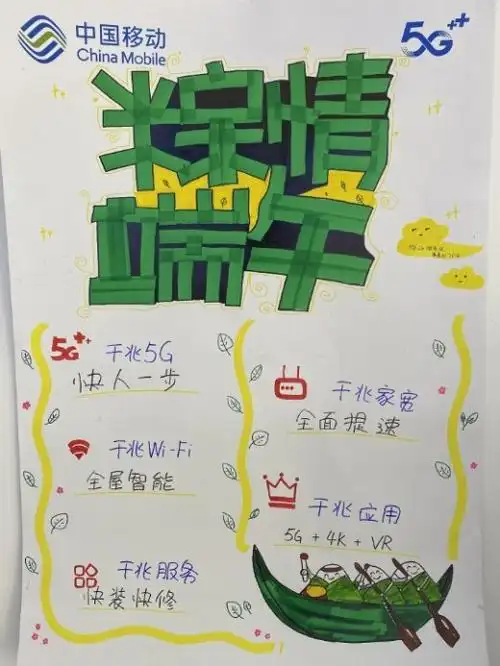 中国移动
China Mobile
5G++
粽情
端午
5G++
千兆5G
快人一步
千兆家宽
全面提速
千兆Wi-Fi
全屋智能
千兆应用
5G + 4K + VR
千兆服务
快装快修